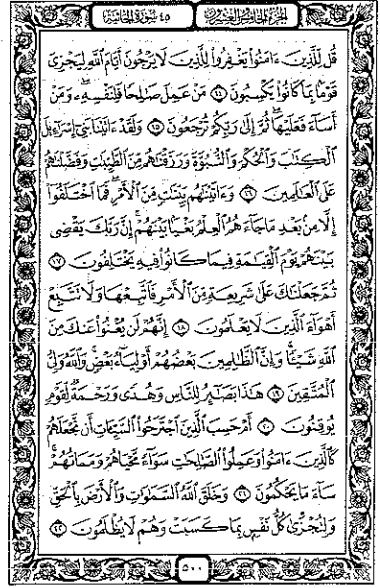 الجزء الخامس والعشرون
٤٥ سورة الجاثية
قُل لِّلَّذِينَ ءَامَنُوا۟ يَغْفِرُوا۟ لِلَّذِينَ لَا يَرْجُونَ أَيَّامَ ٱللَّهِ لِيَجْزِىَ
قَوْمًۢا بِمَا كَانُوا۟ يَكْسِبُونَ ١٤ مَنْ عَمِلَ صَٰلِحًا فَلِنَفْسِهِۦ ۖ وَمَنْ
أَسَآءَ فَعَلَيْهَا ۖ ثُمَّ إِلَىٰ رَبِّكُمْ تُرْجَعُونَ ١٥ وَلَقَدْ ءَاتَيْنَا بَنِىٓ إِسْرَٰٓءِيلَ
ٱلْكِتَٰبَ وَٱلْحُكْمَ وَٱلنُّبُوَّةَ وَرَزَقْنَٰهُم مِّنَ ٱلطَّيِّبَٰتِ وَفَضَّلْنَٰهُمْ
عَلَى ٱلْعَٰلَمِينَ ١٦ وَءَاتَيْنَٰهُم بَيِّنَٰتٍ مِّنَ ٱلْأَمْرِ ۖ فَمَا ٱخْتَلَفُوٓا۟
إِلَّا مِنۢ بَعْدِ مَا جَآءَهُمُ ٱلْعِلْمُ بَغْيًۢا بَيْنَهُمْ ۚ إِنَّ رَبَّكَ يَقْضِى
بَيْنَهُمْ يَوْمَ ٱلْقِيَٰمَةِ فِيمَا كَانُوا۟ فِيهِ يَخْتَلِفُونَ ١٧
ثُمَّ جَعَلْنَٰكَ عَلَىٰ شَرِيعَةٍ مِّنَ ٱلْأَمْرِ فَٱتَّبِعْهَا وَلَا تَتَّبِعْ
أَهْوَآءَ ٱلَّذِينَ لَا يَعْلَمُونَ ١٨ إِنَّهُمْ لَن يُغْنُوا۟ عَنكَ مِنَ
ٱللَّهِ شَيْـًٔا ۚ وَإِنَّ ٱلظَّٰلِمِينَ بَعْضُهُمْ أَوْلِيَآءُ بَعْضٍ ۖ وَٱللَّهُ وَلِىُّ
ٱلْمُتَّقِينَ ١٩ هَٰذَا بَصَٰٓئِرُ لِلنَّاسِ وَهُدًى وَرَحْمَةٌ لِّقَوْمٍ
يُوقِنُونَ ٢٠ أَمْ حَسِبَ ٱلَّذِينَ ٱجْتَرَحُوا۟ ٱلسَّيِّـَٔاتِ أَن نَّجْعَلَهُمْ
كَٱلَّذِينَ ءَامَنُوا۟ وَعَمِلُوا۟ ٱلصَّٰلِحَٰتِ سَوَآءً مَّحْيَاهُمْ وَمَمَاتُهُمْ ۚ
سَآءَ مَا يَحْكُمُونَ ٢١ وَخَلَقَ ٱللَّهُ ٱلسَّمَٰوَٰتِ وَٱلْأَرْضَ بِٱلْحَقِّ
وَلِتُجْزَىٰ كُلُّ نَفْسٍۭ بِمَا كَسَبَتْ وَهُمْ لَا يُظْلَمُونَ ٢٢
٥٠٠